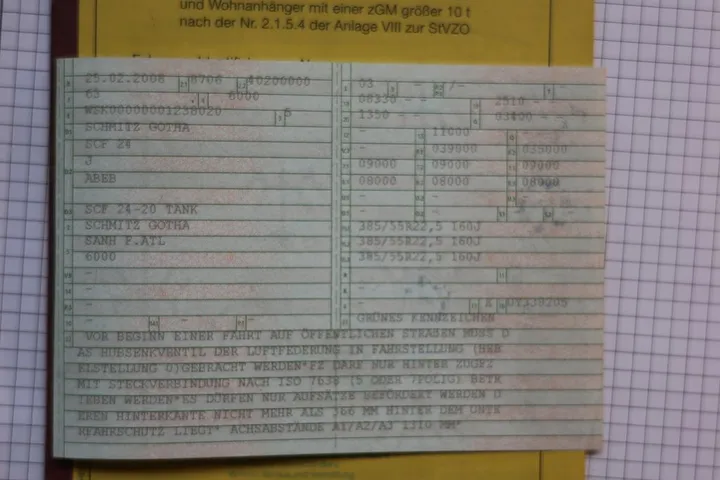 und Wohnanhänger mit einer zGM größer 10 t
nach der Nr. 2.1.5.4 der Anlage VIII zur StVZO
25.02.2008 8706 40200000
63 6000
WSK00000001238020 5
SCHMITZ GOTHA
SCF 24
J
ABEB
SCF 24-20 TANK
SCHMITZ GOTHA
SANH F.ATL
6000
-
-
-
- - -
03 - -/- -
08330 - - 2510 - -
1350 - - 03400 - -
- 11000 -
- 039000 035000
09000 09000 09000
08000 08000 08000
- - -
- -
385/55R22,5 160J
385/55R22,5 160J
385/55R22,5 160J
-
-
- - K
GRÜNES KENNZEICHEN
VOR BEGINN EINER FAHRT AUF ÖFFENTLICHEN STRAßEN MUSS D
AS HUBSENKVENTIL DER LUFTFEDERUNG IN FAHRSTELLUNG (HEB
ELSTELLUNG 0)GEBRACHT WERDEN*FZ DARF NUR HINTER ZUGFZ
MIT STECKVERBINDUNG NACH ISO 7638 (5 ODER 7POLIG) BETR
IEBEN WERDEN*ES DÜRFEN NUR AUFSÄTZE BEFÖRDERT WERDEN D
EREN HINTERKANTE NICHT MEHR ALS 366 MM HINTER DEM UNTE
RFAHRSCHUTZ LIEGT* ACHSABSTÄNDE A1/A2/A3 1310 MM*